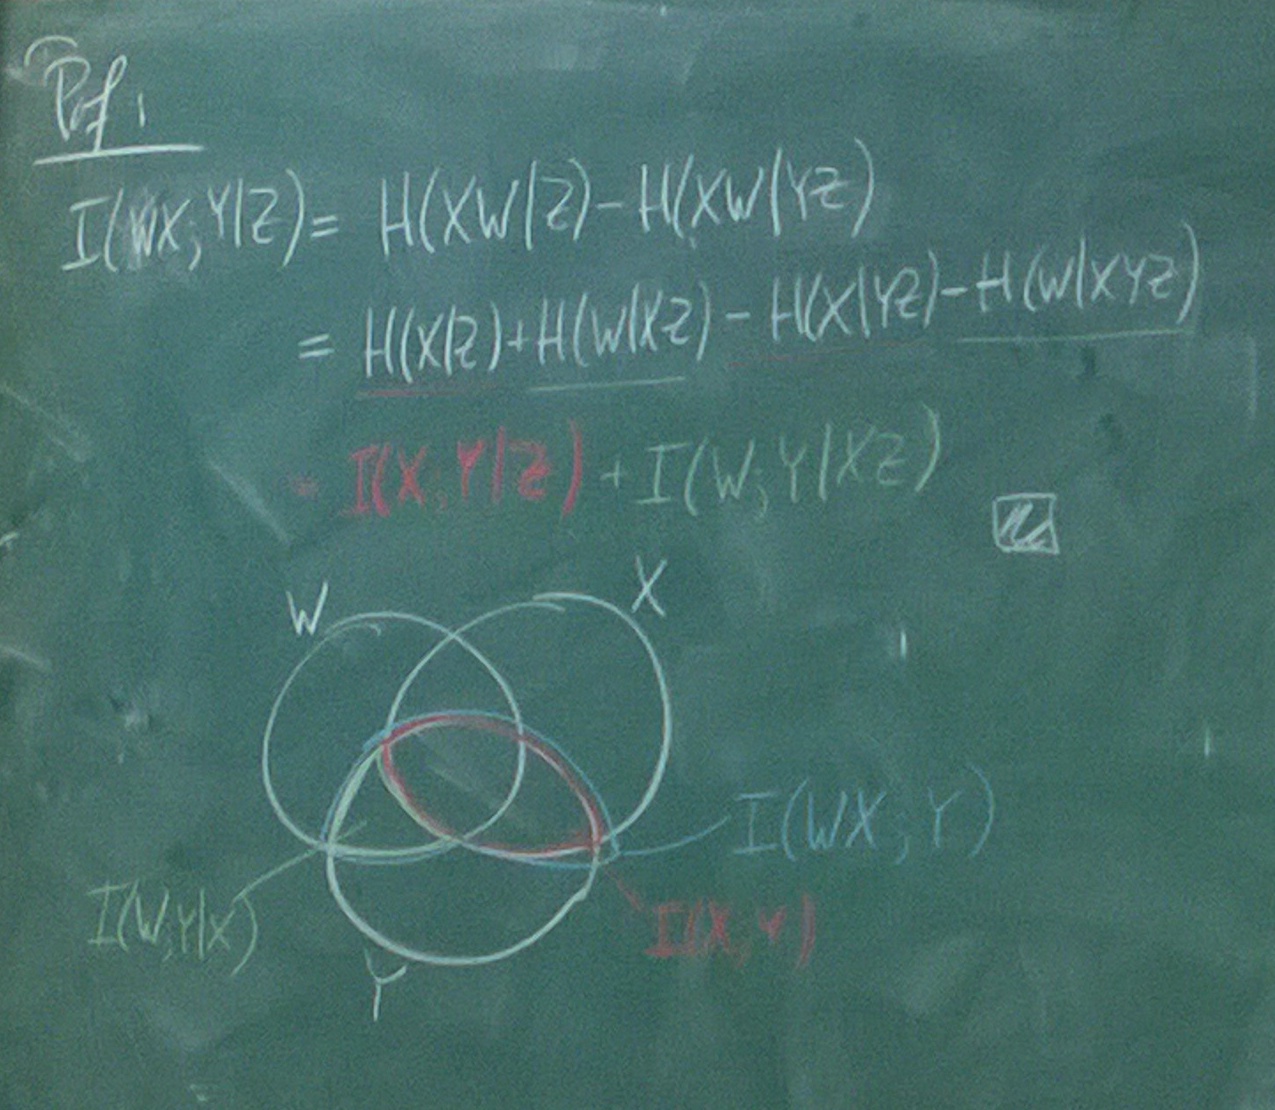 Prf:
I(WX;Y|Z) = H(XW|Z) - H(XW|YZ)
= H(X|Z) + H(W|XZ) - H(X|YZ) - H(W|XYZ)
= I(X;Y|Z) + I(W;Y|XZ)
W X
I(WX;Y)
I(W;Y|X) I(X;Y)
Y